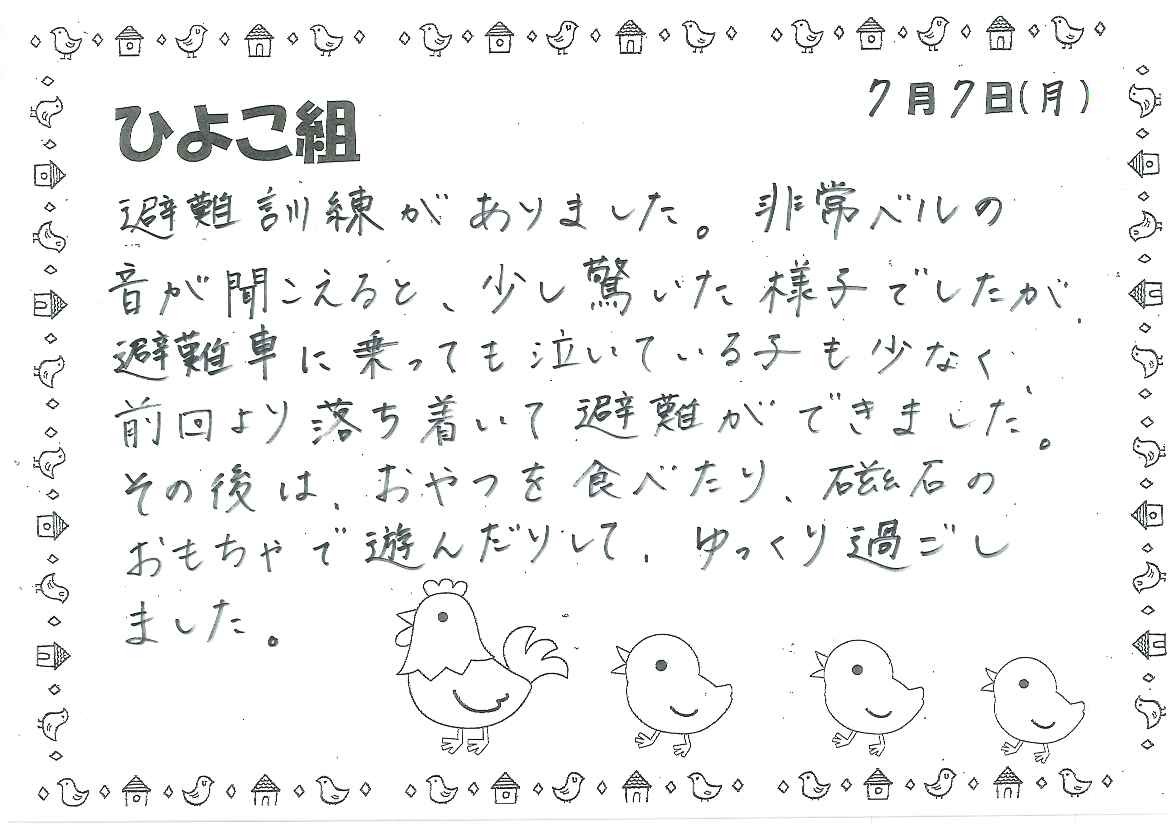 7月7日(月)
ひよこ組
避難訓練がありました。非常ベルの
音が聞こえると、少し驚いた様子でしたが、
避難車に乗っても泣いている子も少なく、
前回より落ち着いて避難ができました。
その後は、おやつを食べたり、磁石の
おもちゃで遊んだりして、ゆっくり過ごし
ました。